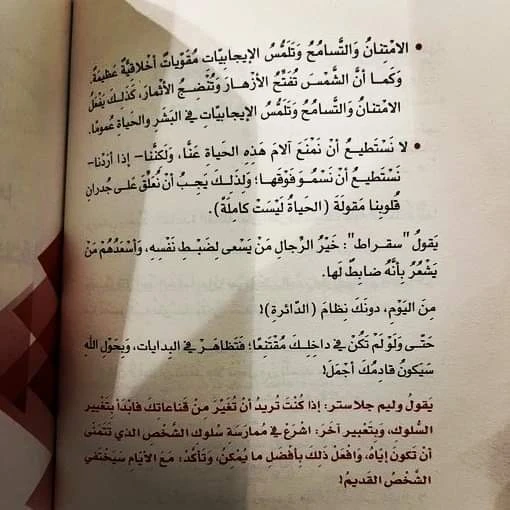 • الامْتِنانُ وَالتَّسامُحُ وَتَلَمُّسُ الإيجابِيّات مُقَوِّياتٌ أخْلاقِيَّةٌ عَظيمَةٌ،
وَكَما أنَّ الشَّمْسَ تُفَتِّحُ الأزْهارَ وَتُنْضِجُ الأثْمارَ، كَذلِكَ يَفْعَلُ
الامْتنانُ وَالتَّسامُحُ وَتَلَمُّسُ الإيجابِيّاتِ في البَشَرِ وَالحَياةِ عُمومًا.
• لا نَسْتَطيعُ أنْ نَمْنَعَ آلامَ هَذِهِ الحَياةِ عَنّا، وَلَكنَّنا– إذا أرَدْنا–
نَسْتَطيعُ أنْ نَسْمُوَ فَوْقَها؛ وَلِذلِكَ يَجِبُ أنْ نُعَلِّقَ عَلى جُدرانِ
قُلوبِنا مَقولَةَ (الحَياةُ لَيْسَتْ كامِلَةً).
يَقولُ "سقراط": خَيْرُ الرِّجالِ مَنْ يَسْعى لِضَبْطِ نَفْسِهِ، وَأسْعَدُهُمْ مَنْ
يَشْعُرُ بِأنَّهُ ضابِطٌ لَها.
مِنَ اليَوْمِ، دونَكَ نِظامَ (الدّائرةِ)!
حَتّى وَلَوْ لَمْ تَكُنْ في داخِلِكَ مُقْتَنِعًا؛ فَتَظاهَرْ في البِدايات، وَبِحَوْلِ اللهِ
سَيَكونُ قادِمُكَ أجْمَلَ!
يَقولُ وليم جلاستر: إذا كُنْتَ تُريدُ أنْ تُغَيِّرَ مِنْ قَناعاتِكَ فَابْدَأْ بِتَغْييرِ
السُّلوكِ، وَبِتَعْبيرٍ آخَرَ: اشْرَعْ في مُمارَسَةِ سُلوكِ الشَّخْصِ الذي تَتَمَنّى
أنْ تكونَ إيّاهُ، وَافْعَلْ ذَلِكَ بِأفْضَلِ ما يُمْكِنُ، وَتَأكَّدْ: مَعَ الأيّامِ سَيَخْتَفي
الشَّخْصُ القَديمُ!